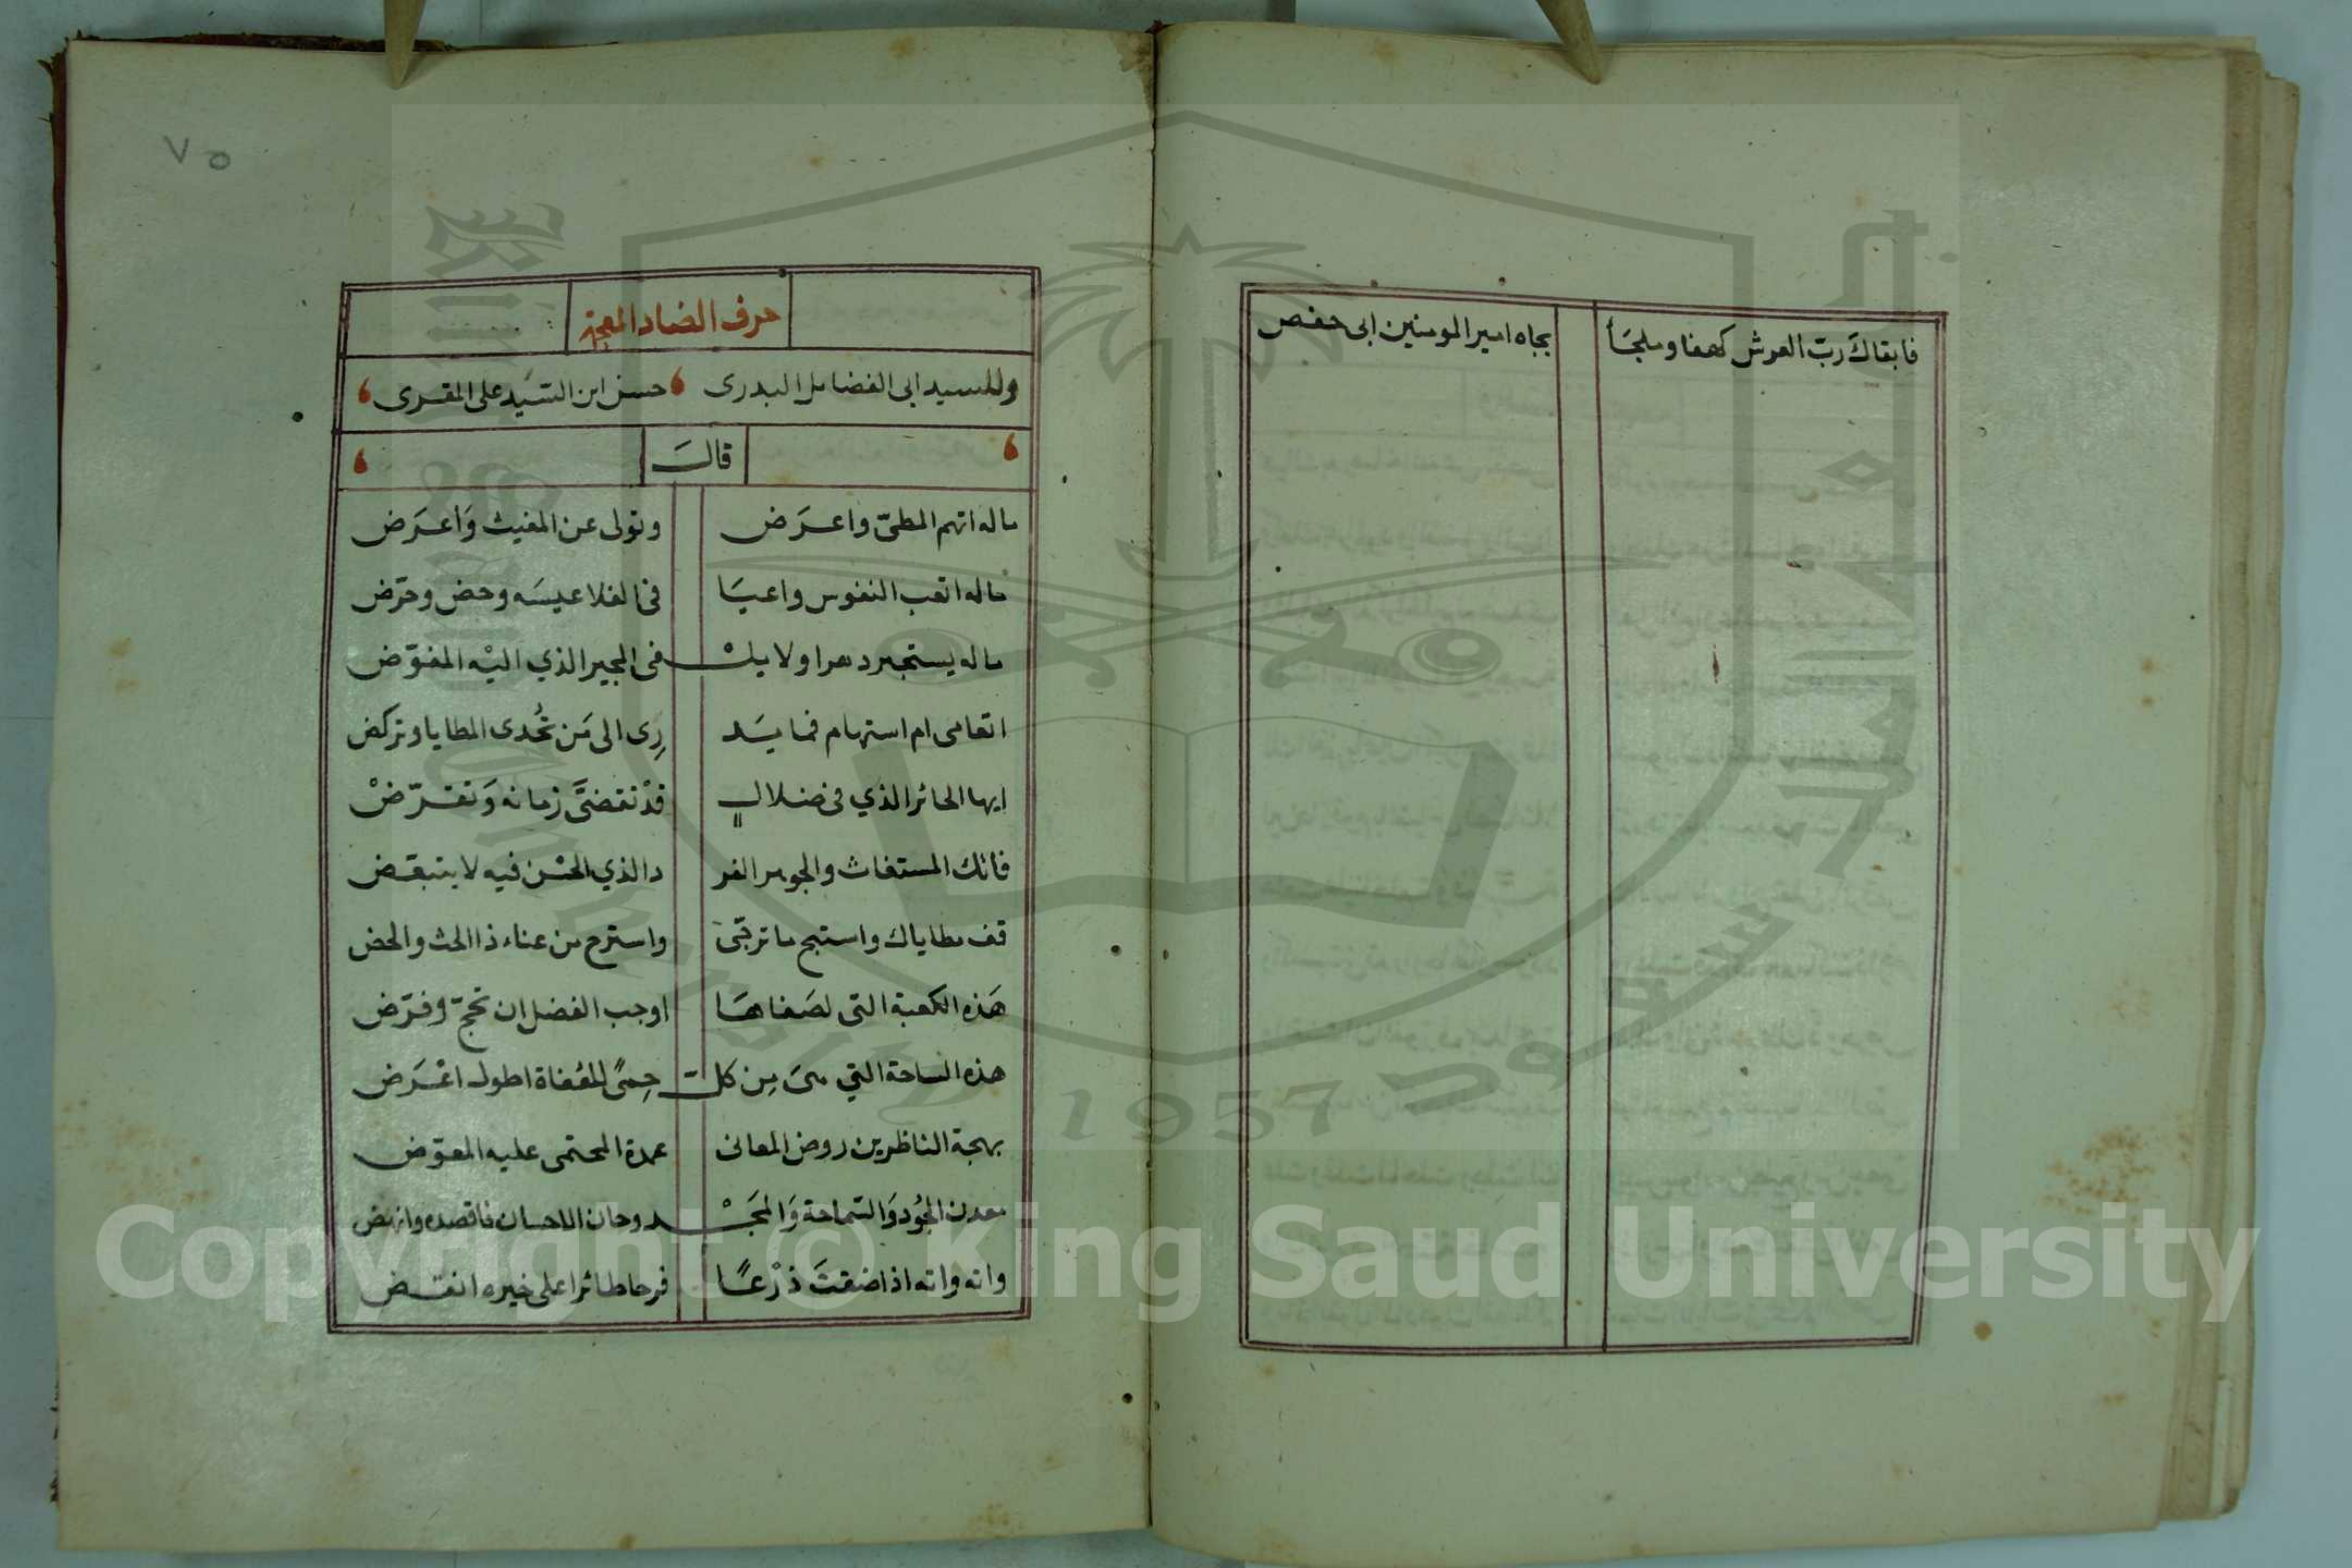 فابقاكَ ربّ العرش كهفا وملجَأ بجاه امير المومنين ابى حفص
٧٥
حرف الضاد المعجمة
وللسيد ابى الفضايل البدرى حسن ابن السّيد على المقرى
قالَ
ماله اتهم المطىّ واعرَض وتولى عن المغيث وَاعرَض
ماله اتعب النفوس واعيَا فى الفلا عيسَه وحض وحرّض
ماله يستجير دهرا ولا يلْـ ـفى المجير الذي اليْه المفوّض
اتعامى ام استهام فما يَد رِى الى مَن تُحدى المطايا وتركض
ايها الحائر الذي فى ضلالٍ قدْ تقضىَّ زمانه وَتقرّضْ
فاتك المستغاث والجوهر الفر د الذي الحسْن فيه لا يتبعّض
قف مطاياك واستبح ما ترجّى واسترح من عناء ذا الحث والحض
هَذه الكعبة التى لصَفاهَا اوجب الفضل ان تحجّ وفرّض
هذه الساحة التي هىَ مِن كلّ حِمىً للعُفاة اطول اعْرَض
بهجة الناظرين روض المعانى عمدة المحتمى عليه المعوّض
معدن الجُود وَالسّماحة وَالمجَـْـ ـد وحان الاحسان فاقصده وانهض
واته واته اذا ضقتَ ذرْعًا فرحا طائرا على خيره انقض
Copyright © King Saud University
1957